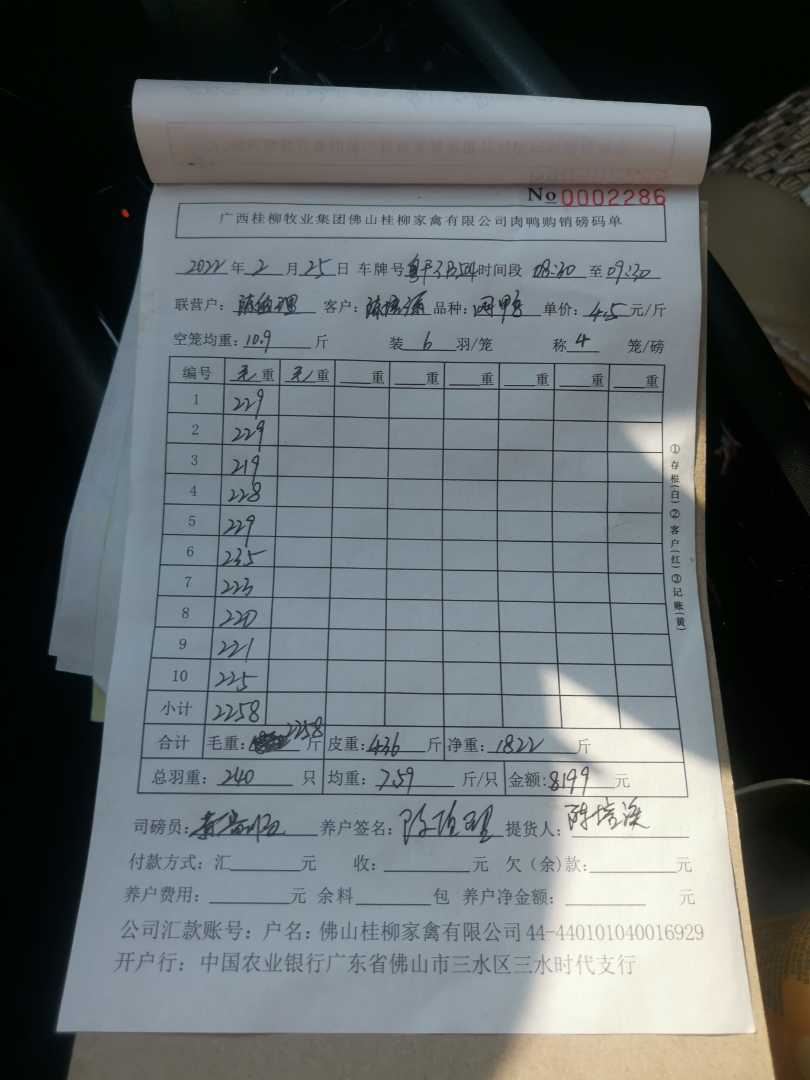 No 0002286
广西桂柳牧业集团佛山桂柳家禽有限公司肉鸭购销磅码单
2022年2月25日 车牌号 时间段 08:30 至 09:30
联营户: 客户: 品种: 肉鸭 单价: 4.5 元/斤
空笼均重: 10.9 斤 装 6 羽/笼 称 4 笼/磅
编号 毛重 毛重 重 重 重 重 重 重
1 229
2 229
3 219
4 228
5 229
6 235
7 223
8 220
9 221
10 225
小计 2258
合计 毛重: 2258 斤 皮重: 436 斤 净重: 1822 斤
总羽重: 240 只 均重: 7.59 斤/只 金额: 8199 元
司磅员: 养户签名: 提货人:
付款方式: 汇 元 收: 元 欠(余)款: 元
养户费用: 元 余料 包 养户净金额: 元
公司汇款账号: 户名: 佛山桂柳家禽有限公司 44-440101040016929
开户行: 中国农业银行广东省佛山市三水区三水时代支行
①存根(白)②客户(红)③记账(黄)